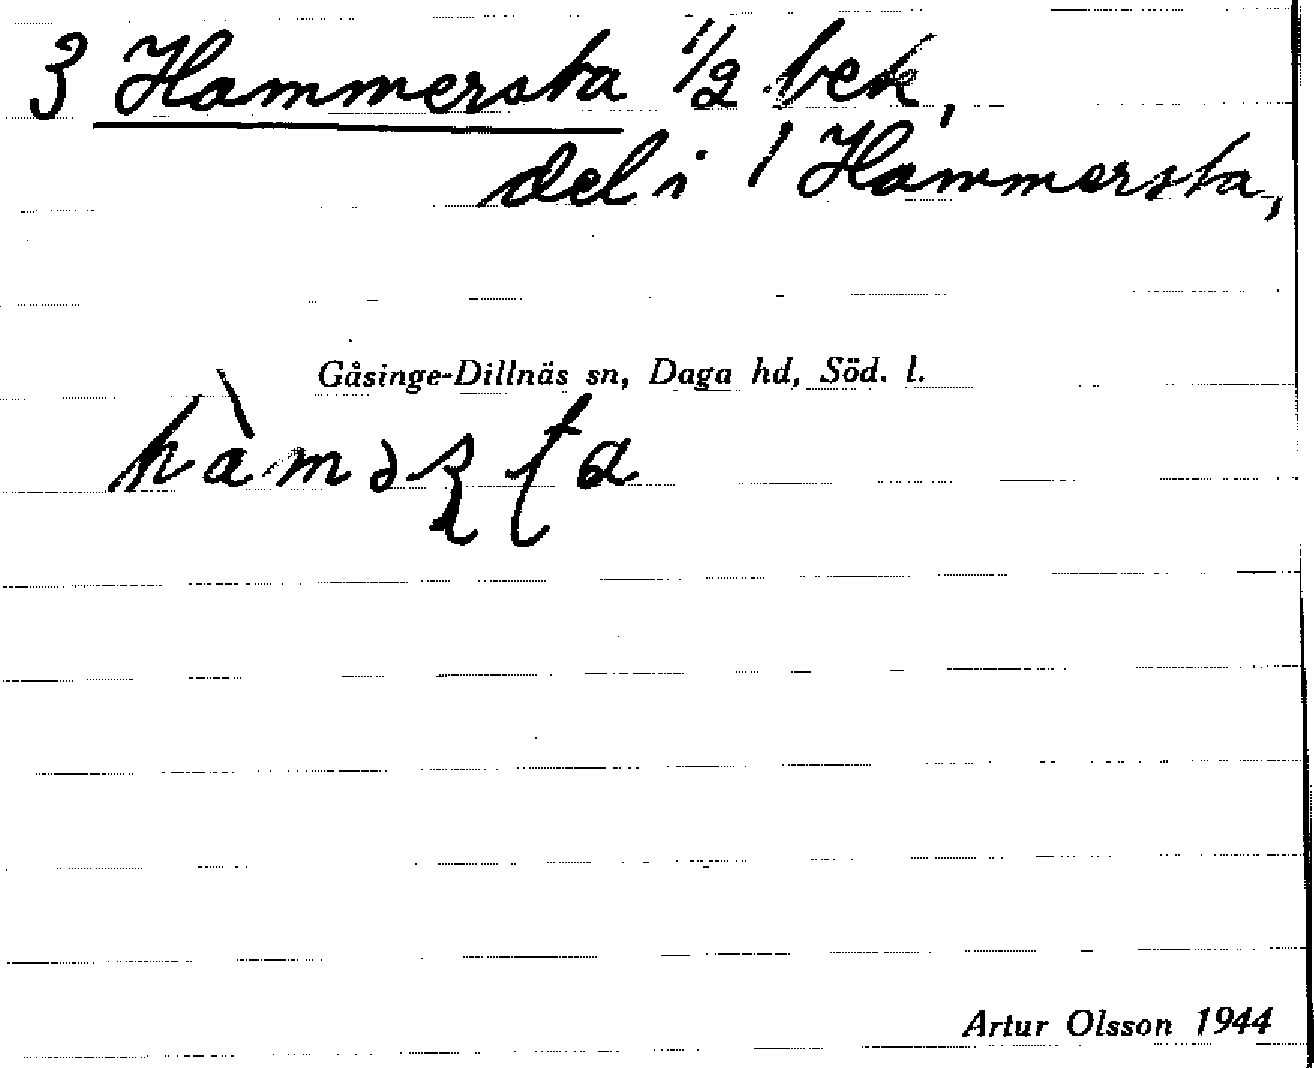 3 Hammersta 1/2 bek,
del i 1 Hammersta,
Gåsinge-Dillnäs sn, Daga hd, Söd. l.
Artur Olsson 1944